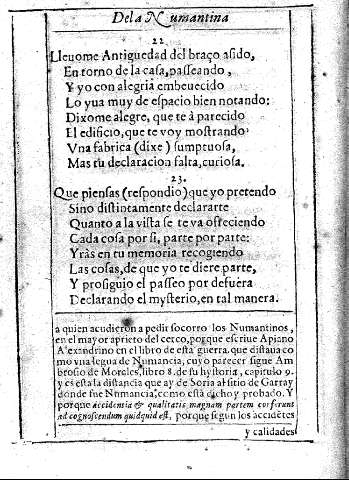 De la Numantina
22
Lleuome Antiguedad del braço asido,
En torno de la casa, passeando,
Y yo con alegria embeuecido
Lo yua muy de espacio bien notando:
Dixome alegre, que te à parecido
El edificio, que te voy mostrando?
Vna fabrica (dixe) sumptuosa,
Mas tu declaracion falta, curiosa.
23.
Que piensas (respondio) que yo pretendo
Sino distintamente declararte
Quanto a la vista se te va ofreciendo
Cada cosa por si, parte por parte:
Yràs en tu memoria recogiendo
Las cosas, de que yo te diere parte,
Y prosiguio el passeo por defuera
Declarando el mysterio, en tal manera.
a quien acudieron a pedir socorro los Numantinos,
en el mayor aprieto del cerco, porque escriue Apiano
Alexandrino en el libro de esta guerra, que distaua co
mo vna legua de Numancia, cuyo parecer sigue Am
brosio de Morales, libro 8. de su hystoria, capitulo 9.
y es esta la distancia que ay de Soria al sitio de Garray
donde fue Numancia, como està dicho y probado. Y
porque accidentia & qualitates magnam partem conferunt
ad cognoscendum quidquid est, porque segun los accidẽtes
y calidades